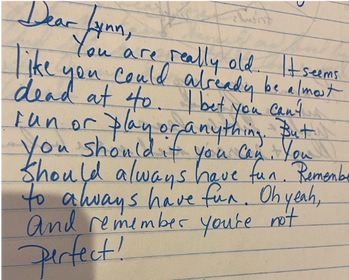 Dear Lynn,
You are really old. It seems
like you could already be almost
dead at 40. I bet you can't
run or play or anything. But
you should if you can. You
should always have fun. Remembe
to always have fun. Oh yeah,
and remember you're not
perfect!